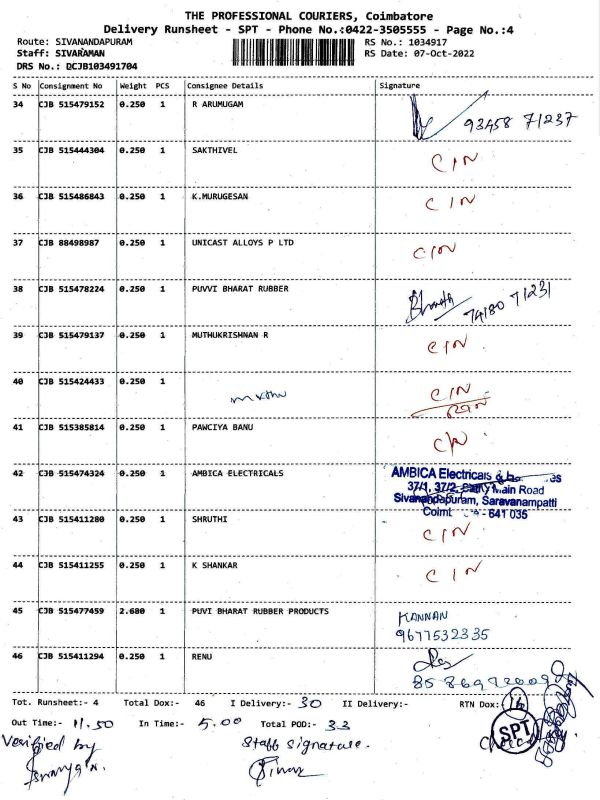 THE PROFESSIONAL COURIERS, Coimbatore
Delivery Runsheet - SPT - Phone No.:0422-3505555 - Page No.:4
Route: SIVANANDAPURAM RS No.: 1034917
Staff: SIVARAMAN RS Date: 07-Oct-2022
DRS No.: DCJB103491704
S No Consignment No Weight PCS Consignee Details Signature
34 CJB 515479152 0.250 1 R ARUMUGAM 93458 71237
35 CJB 515444304 0.250 1 SAKTHIVEL CIN
36 CJB 515486843 0.250 1 K.MURUGESAN CIN
37 CJB 88498987 0.250 1 UNICAST ALLOYS P LTD CIN
38 CJB 515478224 0.250 1 PUVVI BHARAT RUBBER 74180 71231
39 CJB 515479137 0.250 1 MUTHUKRISHNAN R CIN
40 CJB 515424433 0.250 1 CIN
41 CJB 515385814 0.250 1 PAWCIYA BANU CIN
42 CJB 515474324 0.250 1 AMBICA ELECTRICALS AMBICA Electricals &
37/1, 37/2, Main Road
Sivanandapuram, Saravanampatti
- 641 035
43 CJB 515411280 0.250 1 SHRUTHI CIN
44 CJB 515411255 0.250 1 K SHANKAR CIN
45 CJB 515477459 2.680 1 PUVI BHARAT RUBBER PRODUCTS KANNAN
9677532335
46 CJB 515411294 0.250 1 RENU
Tot. Runsheet:- 4 Total Dox:- 46 I Delivery:- 30 II Delivery:- RTN Dox: 16
Out Time:- 11.50 In Time:- 5.00 Total POD:- 33
Verified by Staff signature. SPT